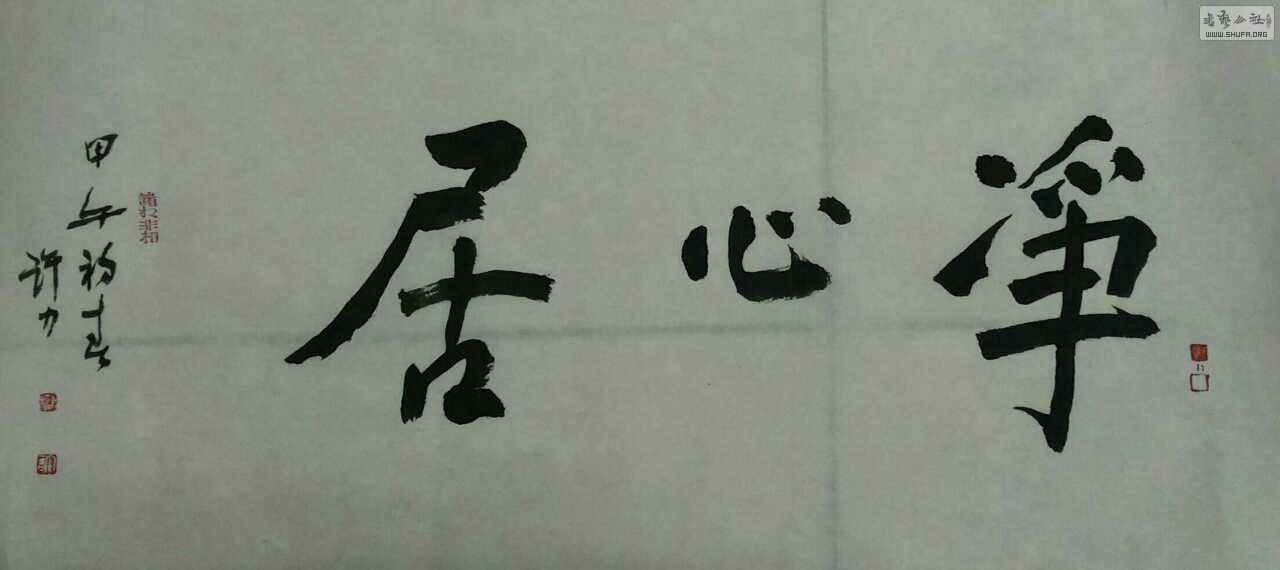 净心居
甲午初春
许力
书艺公社
WWW.SHUFA.ORG